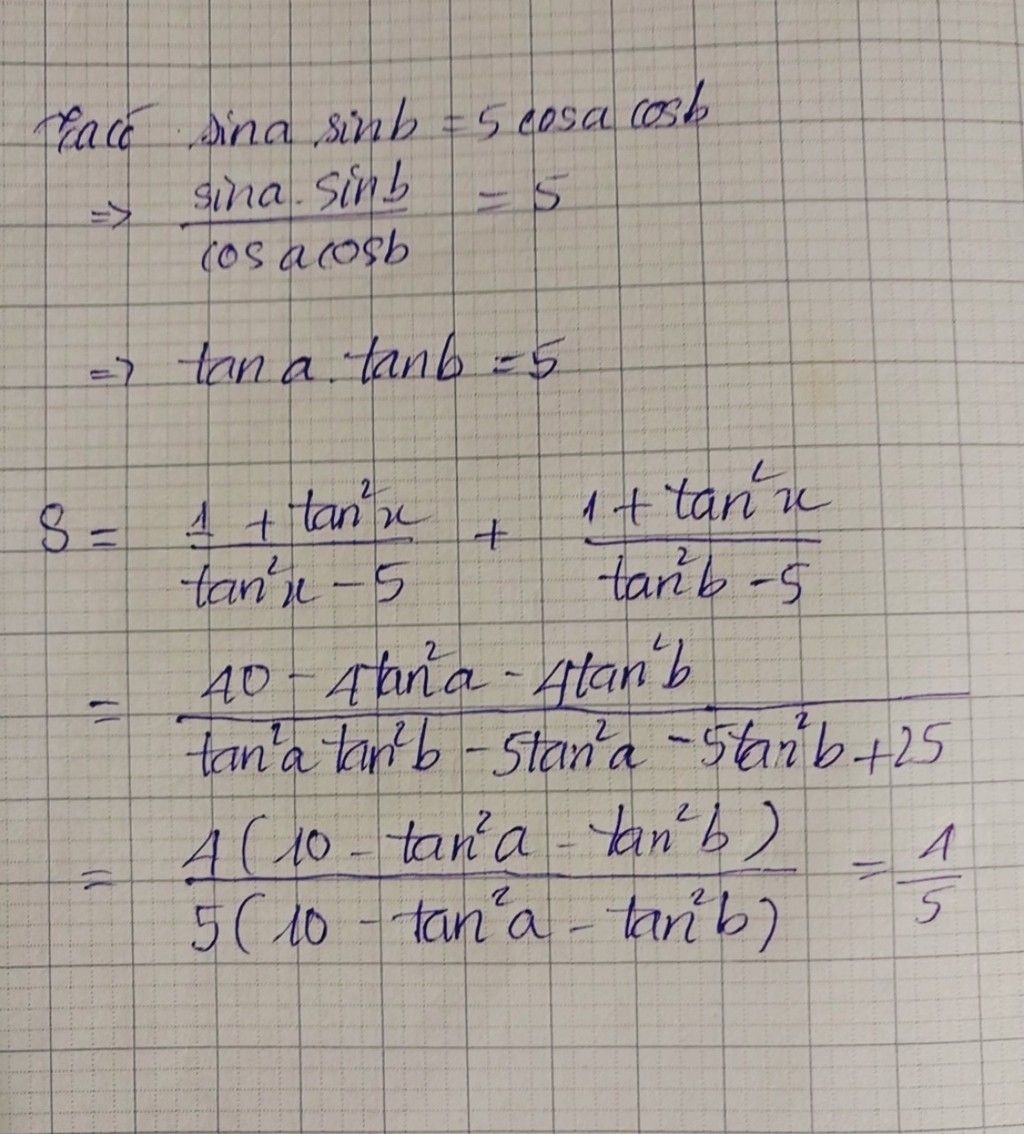 Ta có sina sinb = 5 cosa cosb
=> \frac{sina . sinb}{cosa cosb} = 5
=> tan a . tan b = 5
S = \frac{1 + tan²x}{tan²x - 5} + \frac{1 + tan²x}{tan²b - 5}
= \frac{40 - 4tan²a - 4tan²b}{tan²a tan²b - 5tan²a - 5tan²b + 25}
= \frac{4(10 - tan²a - tan²b)}{5(10 - tan²a - tan²b)} = \frac{1}{5}